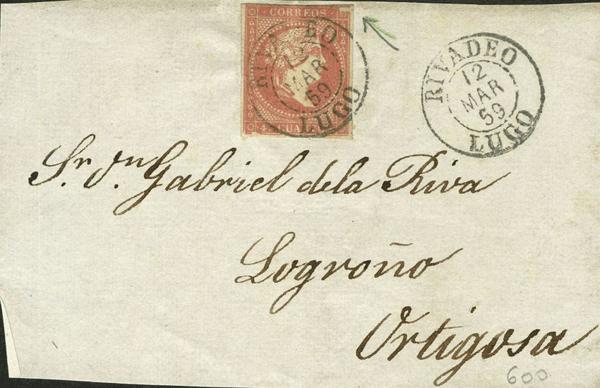 CORREOS
RIVADEO
12
MAR
59
LUGO
RIVADEO
12
MAR
59
LUGO
Sr. Dn. Gabriel de la Riva
Logroño
Ortigosa
600